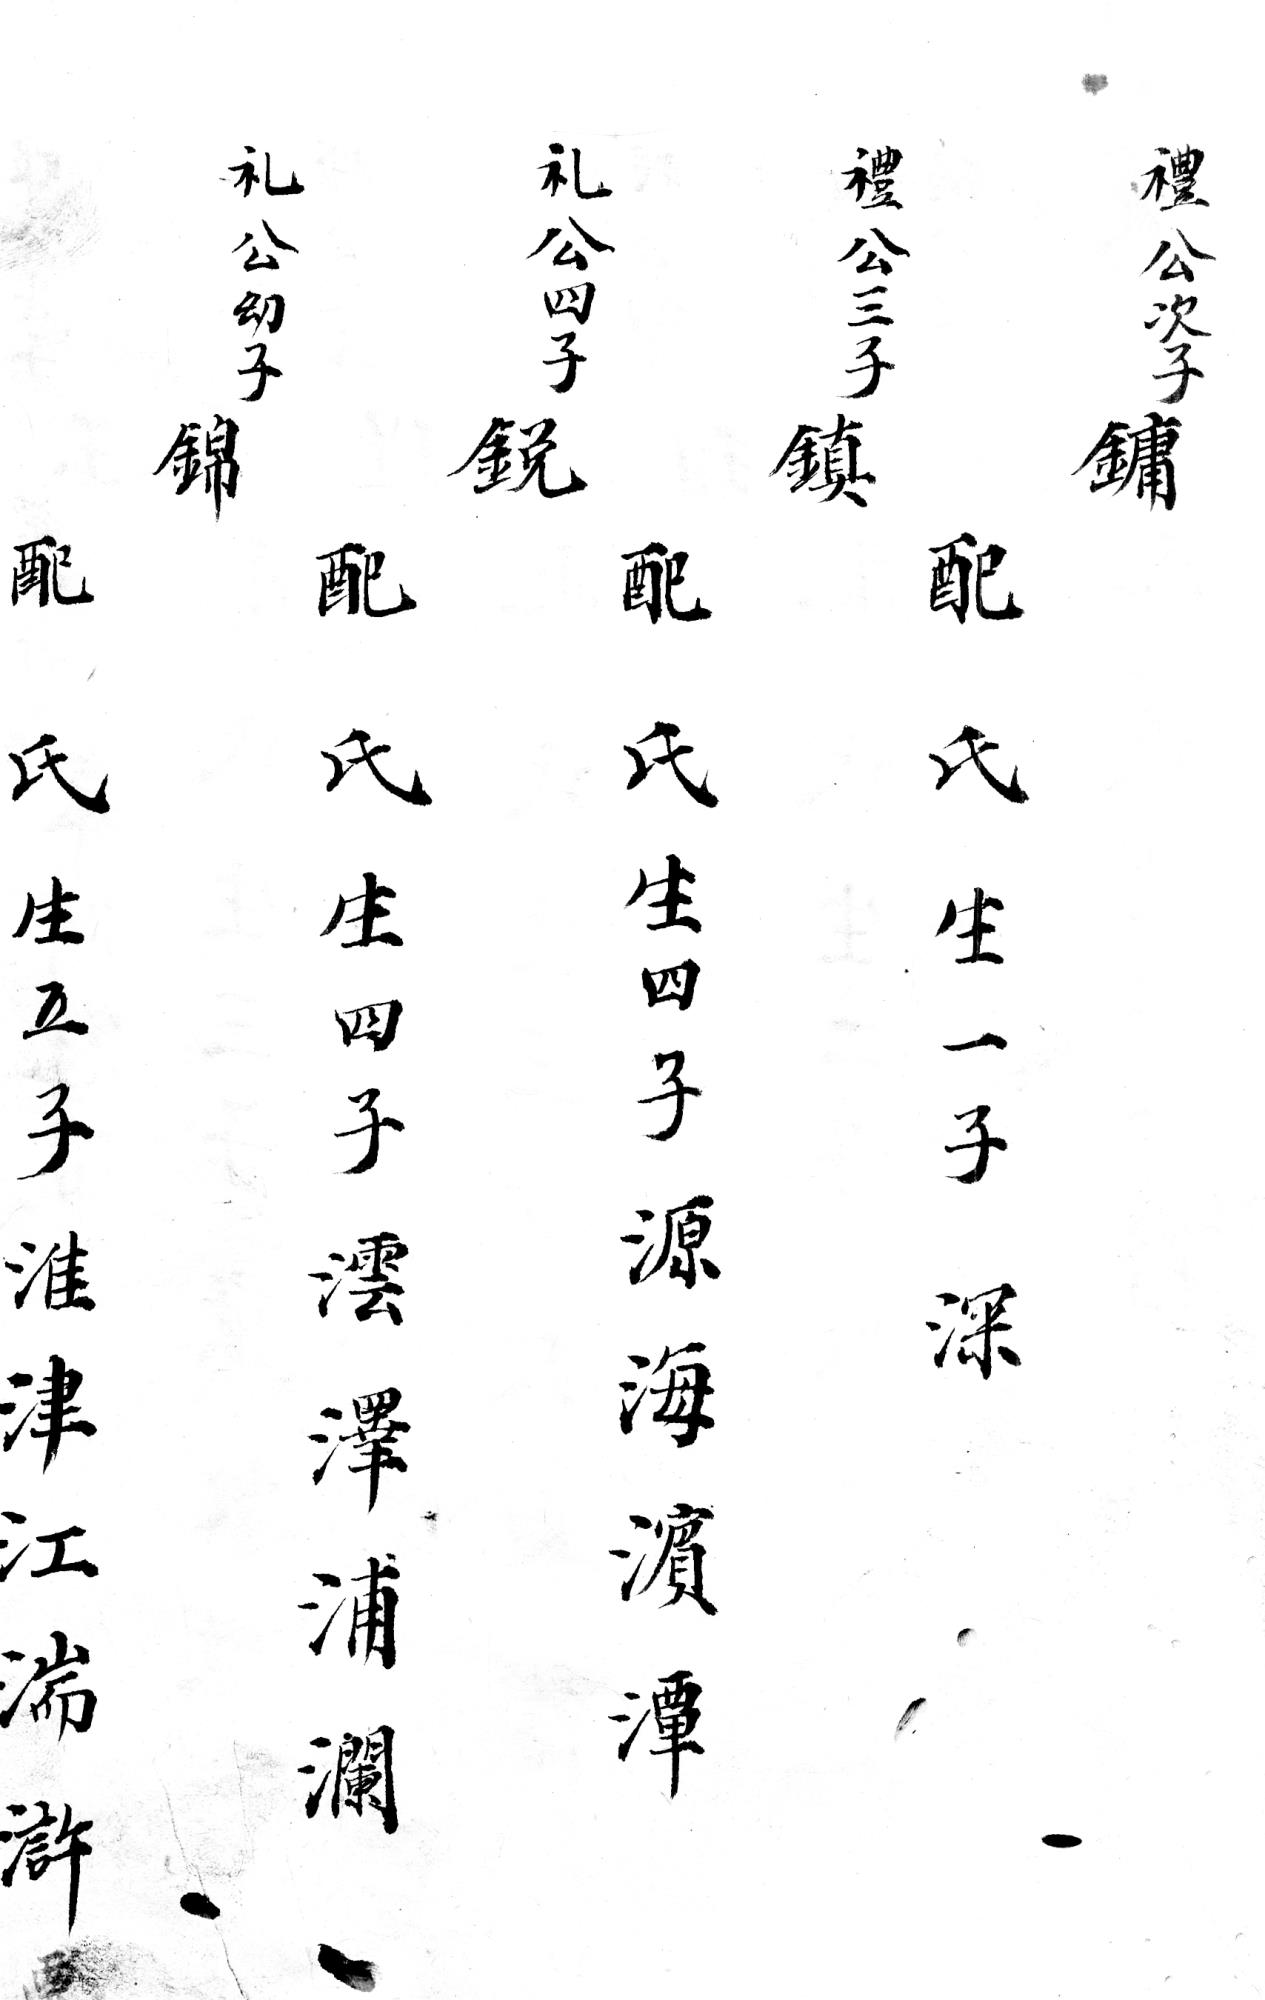 禮公次子
鏞
配 氏 生一子 深
禮公三子
鎮
配 氏 生四子 源 海 濱 潭
礼公四子
銳
配 氏 生四子 澐 澤 浦 瀾
礼公幼子
錦
配 氏 生五子 淮 津 江 湍 滸